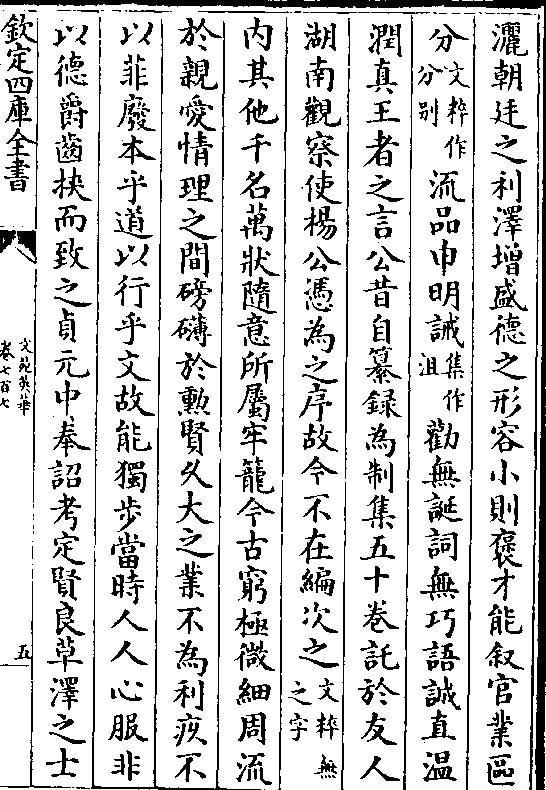 灑朝廷之利澤增盛德之形容小則褒才能叙官業區
分文粹作分别流品申明誡集作沮勸無誕詞無巧語誠直温
潤真王者之言公昔自纂録為制集五十卷託於友人
湖南觀察使楊公憑為之序故今不在編次之文粹無之字
内其他千名萬狀隨意所屬牢籠今古窮極微細周流
於親愛情理之間磅礴於勲賢乆大之業不為利疚不
以菲廢本乎道以行乎文故能獨步當時人人心服非
以德爵齒挾而致之貞元中奉詔考定賢良草澤之士
欽定四庫全書
文苑英華
卷七百七
五